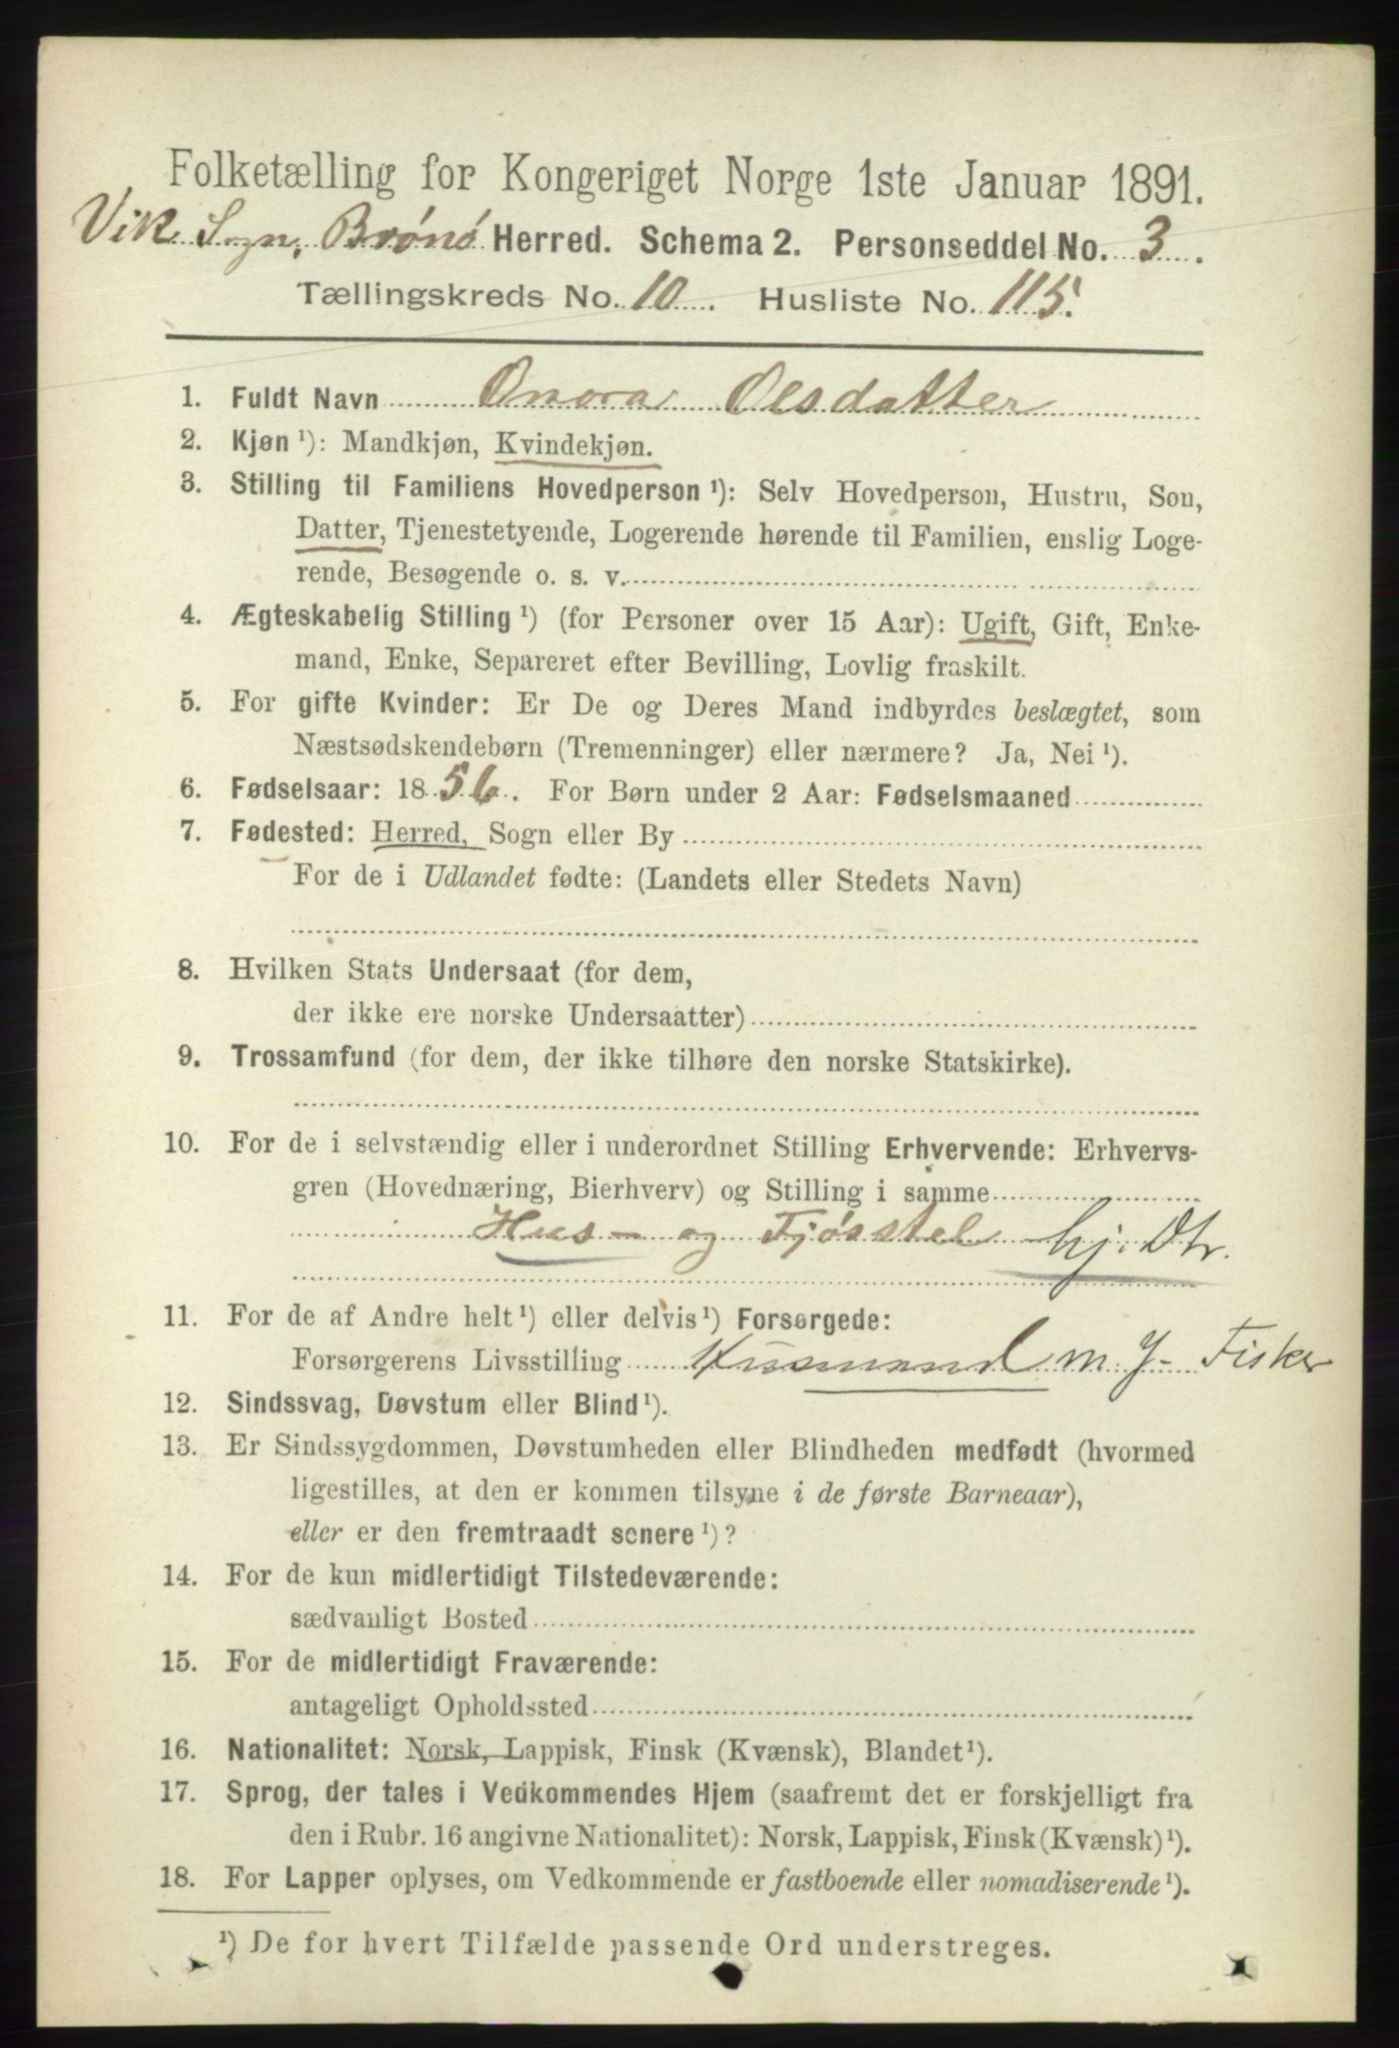 Folketælling for Kongeriget Norge 1ste Januar 1891.
Vik Sogn, Brønø Herred. Schema 2. Personseddel No. 3.
Tællingskreds No. 10. Husliste No. 115.
1. Fuldt Navn Onora Olsdatter
2. Kjøn ¹): Mandkjøn, Kvindekjøn.
3. Stilling til Familiens Hovedperson ¹): Selv Hovedperson, Hustru, Søn,
Datter, Tjenestetyende, Logerende hørende til Familien, enslig Loge-
rende, Besøgende o. s. v.
4. Ægteskabelig Stilling ¹) (for Personer over 15 Aar): Ugift, Gift, Enke-
mand, Enke, Separeret efter Bevilling, Lovlig fraskilt.
5. For gifte Kvinder: Er De og Deres Mand indbyrdes beslægtet, som
Næstsødskendebørn (Tremenninger) eller nærmere? Ja, Nei ¹).
6. Fødselsaar: 1856. For Børn under 2 Aar: Fødselsmaaned
7. Fødested: Herred, Sogn eller By
For de i Udlandet fødte: (Landets eller Stedets Navn)
8. Hvilken Stats Undersaat (for dem,
der ikke ere norske Undersaatter)
9. Trossamfund (for dem, der ikke tilhøre den norske Statskirke).
10. For de i selvstændig eller i underordnet Stilling Erhvervende: Erhvervs-
gren (Hovednæring, Bierhverv) og Stilling i samme
Hus- og Fjøsstel hj. Dtr.
11. For de af Andre helt ¹) eller delvis ¹) Forsørgede:
Forsørgerens Livsstilling Husmand m J- Fisker
12. Sindssvag, Døvstum eller Blind ¹).
13. Er Sindssygdommen, Døvstumheden eller Blindheden medfødt (hvormed
ligestilles, at den er kommen tilsyne i de første Barneaar),
eller er den fremtraadt senere ¹)?
14. For de kun midlertidigt Tilstedeværende:
sædvanligt Bosted
15. For de midlertidigt Fraværende:
antageligt Opholdssted
16. Nationalitet: Norsk, Lappisk, Finsk (Kvænsk), Blandet ¹).
17. Sprog, der tales i Vedkommendes Hjem (saafremt det er forskjelligt fra
den i Rubr. 16 angivne Nationalitet): Norsk, Lappisk, Finsk (Kvænsk) ¹).
18. For Lapper oplyses, om Vedkommende er fastboende eller nomadiserende ¹).
¹) De for hvert Tilfælde passende Ord understreges.